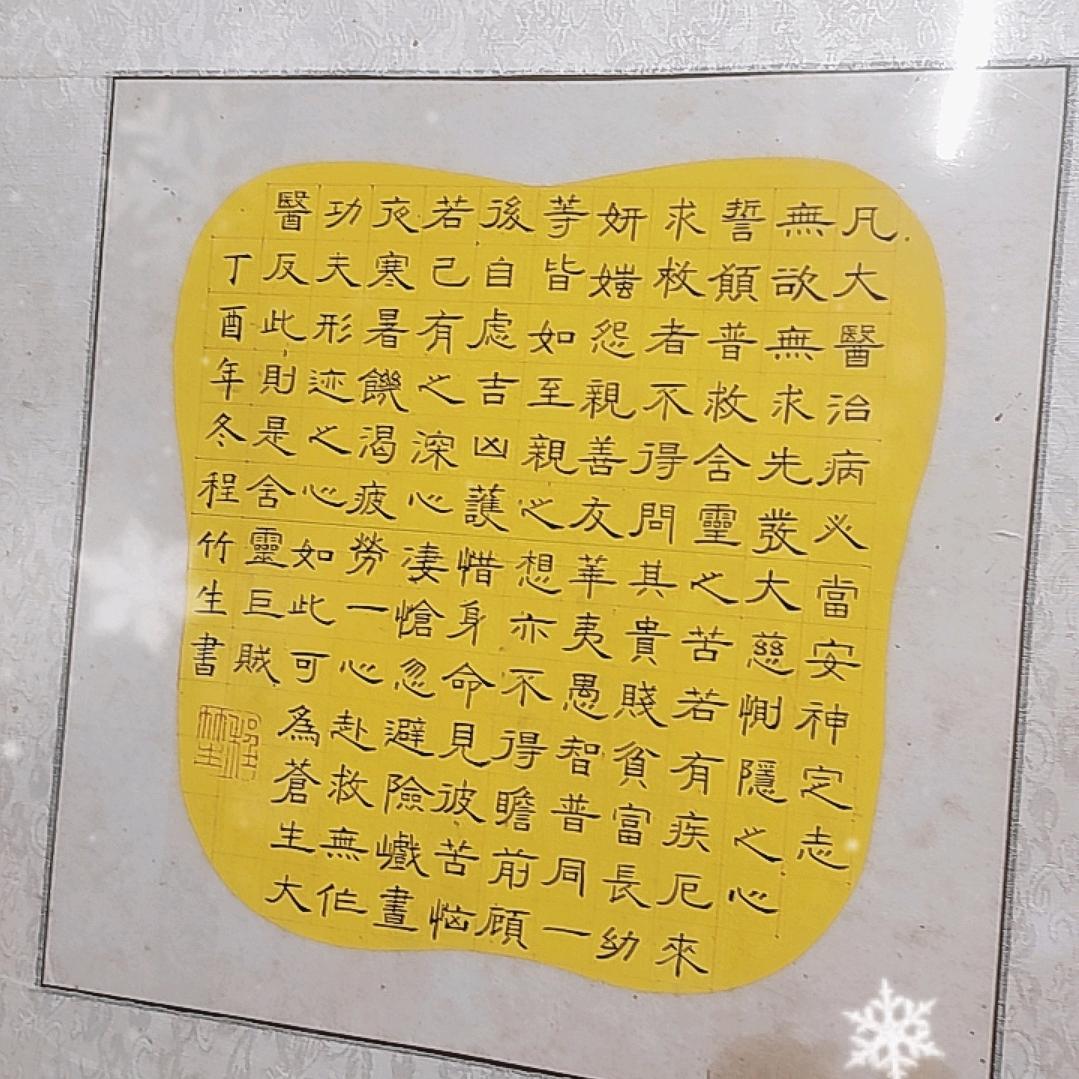 凡大醫治病必當安神定志
無欲無求先發大慈惻隱之心
誓願普救舍靈之苦若有疾厄來
求救者不得問其貴賤貧富長幼
妍媸怨親善友華夷愚智普同一
等皆如至親之想亦不得瞻前顧
後自虑吉凶護惜身命見彼苦惱
若己有之深心凄愴忽避險巇晝
夜寒暑饑渴疲勞一心赴救無作
功夫形迹之心如此可為蒼生大
醫反此則是舍靈巨賊
丁酉年冬程竹生書
程竹生